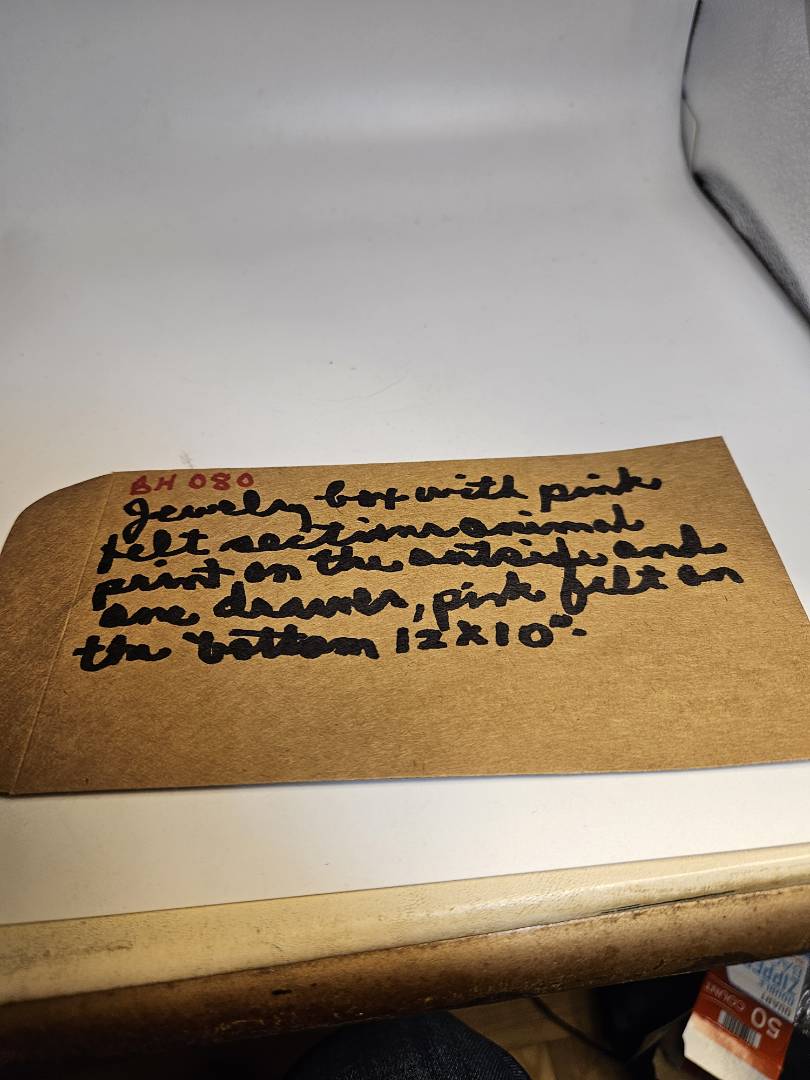 BH 080
Jewelry box with pink
felt sections animal
print on the outside and
one drawer, pink felt on
the bottom 12x10".
50
COUNT
QUART